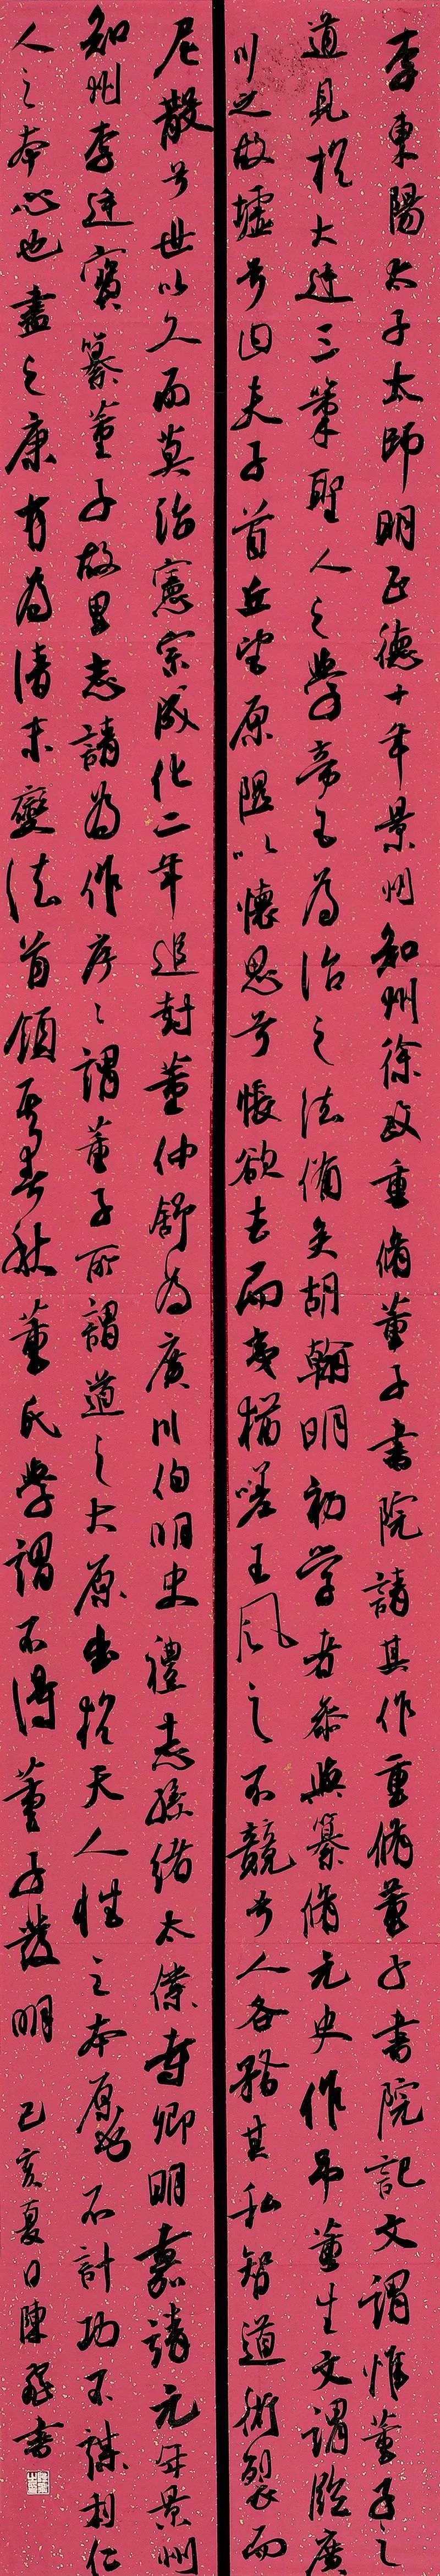 李東陽太子太師明正德十年景州知州徐政重脩董子書院請其作重脩董子書院記文謂惟董子之
道見於大廷三策聖人之學帝王為治之法備矣胡翰明初學者參與纂脩元史作弔董生文謂臨廣
川之故墟兮因夫子首丘望原隰以懷思兮悵欲去而夷猶嗟王風之不競兮人各務其私智道術裂而
尼散兮世以久而莫治憲宗成化二年追封董仲舒為廣川伯明史禮志孫緒太僕寺卿明嘉靖元年景州
知州李廷寶纂董子故里志請為作序序謂董子所謂道之大原出於天人性之本原也不計功不謀利仁
人之本心也盡之康有為清末變法首領春秋董氏學謂不得董子發明
己亥夏日陳飛書